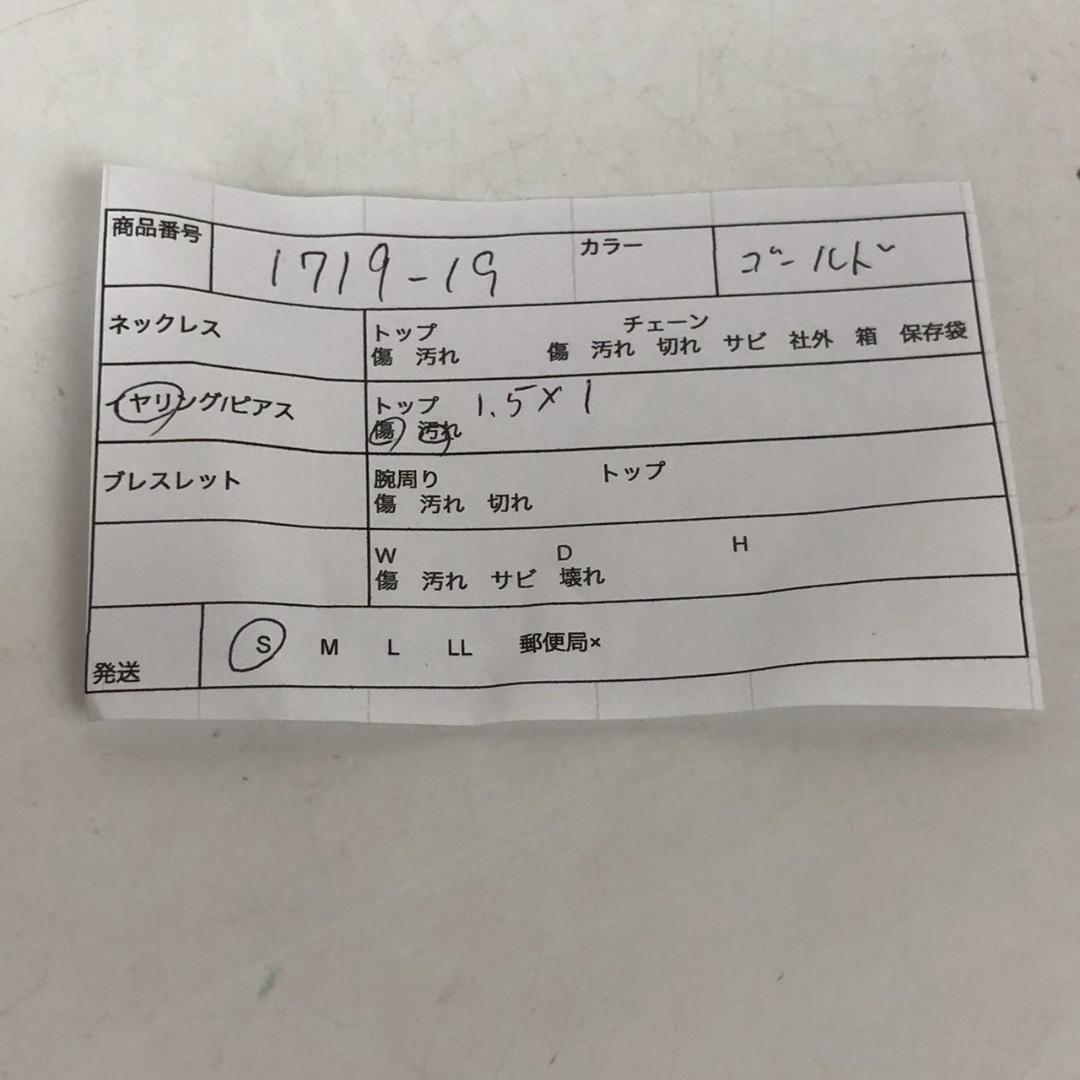 商品番号 1719-19 カラー ゴールド
ネックレス トップ チェーン
傷 汚れ 傷 汚れ 切れ サビ 社外 箱 保存袋
イヤリング/ピアス トップ 1.5×1
傷 汚れ
ブレスレット 腕周り トップ
傷 汚れ 切れ
W D H
傷 汚れ サビ 壊れ
発送 S M L LL 郵便局×